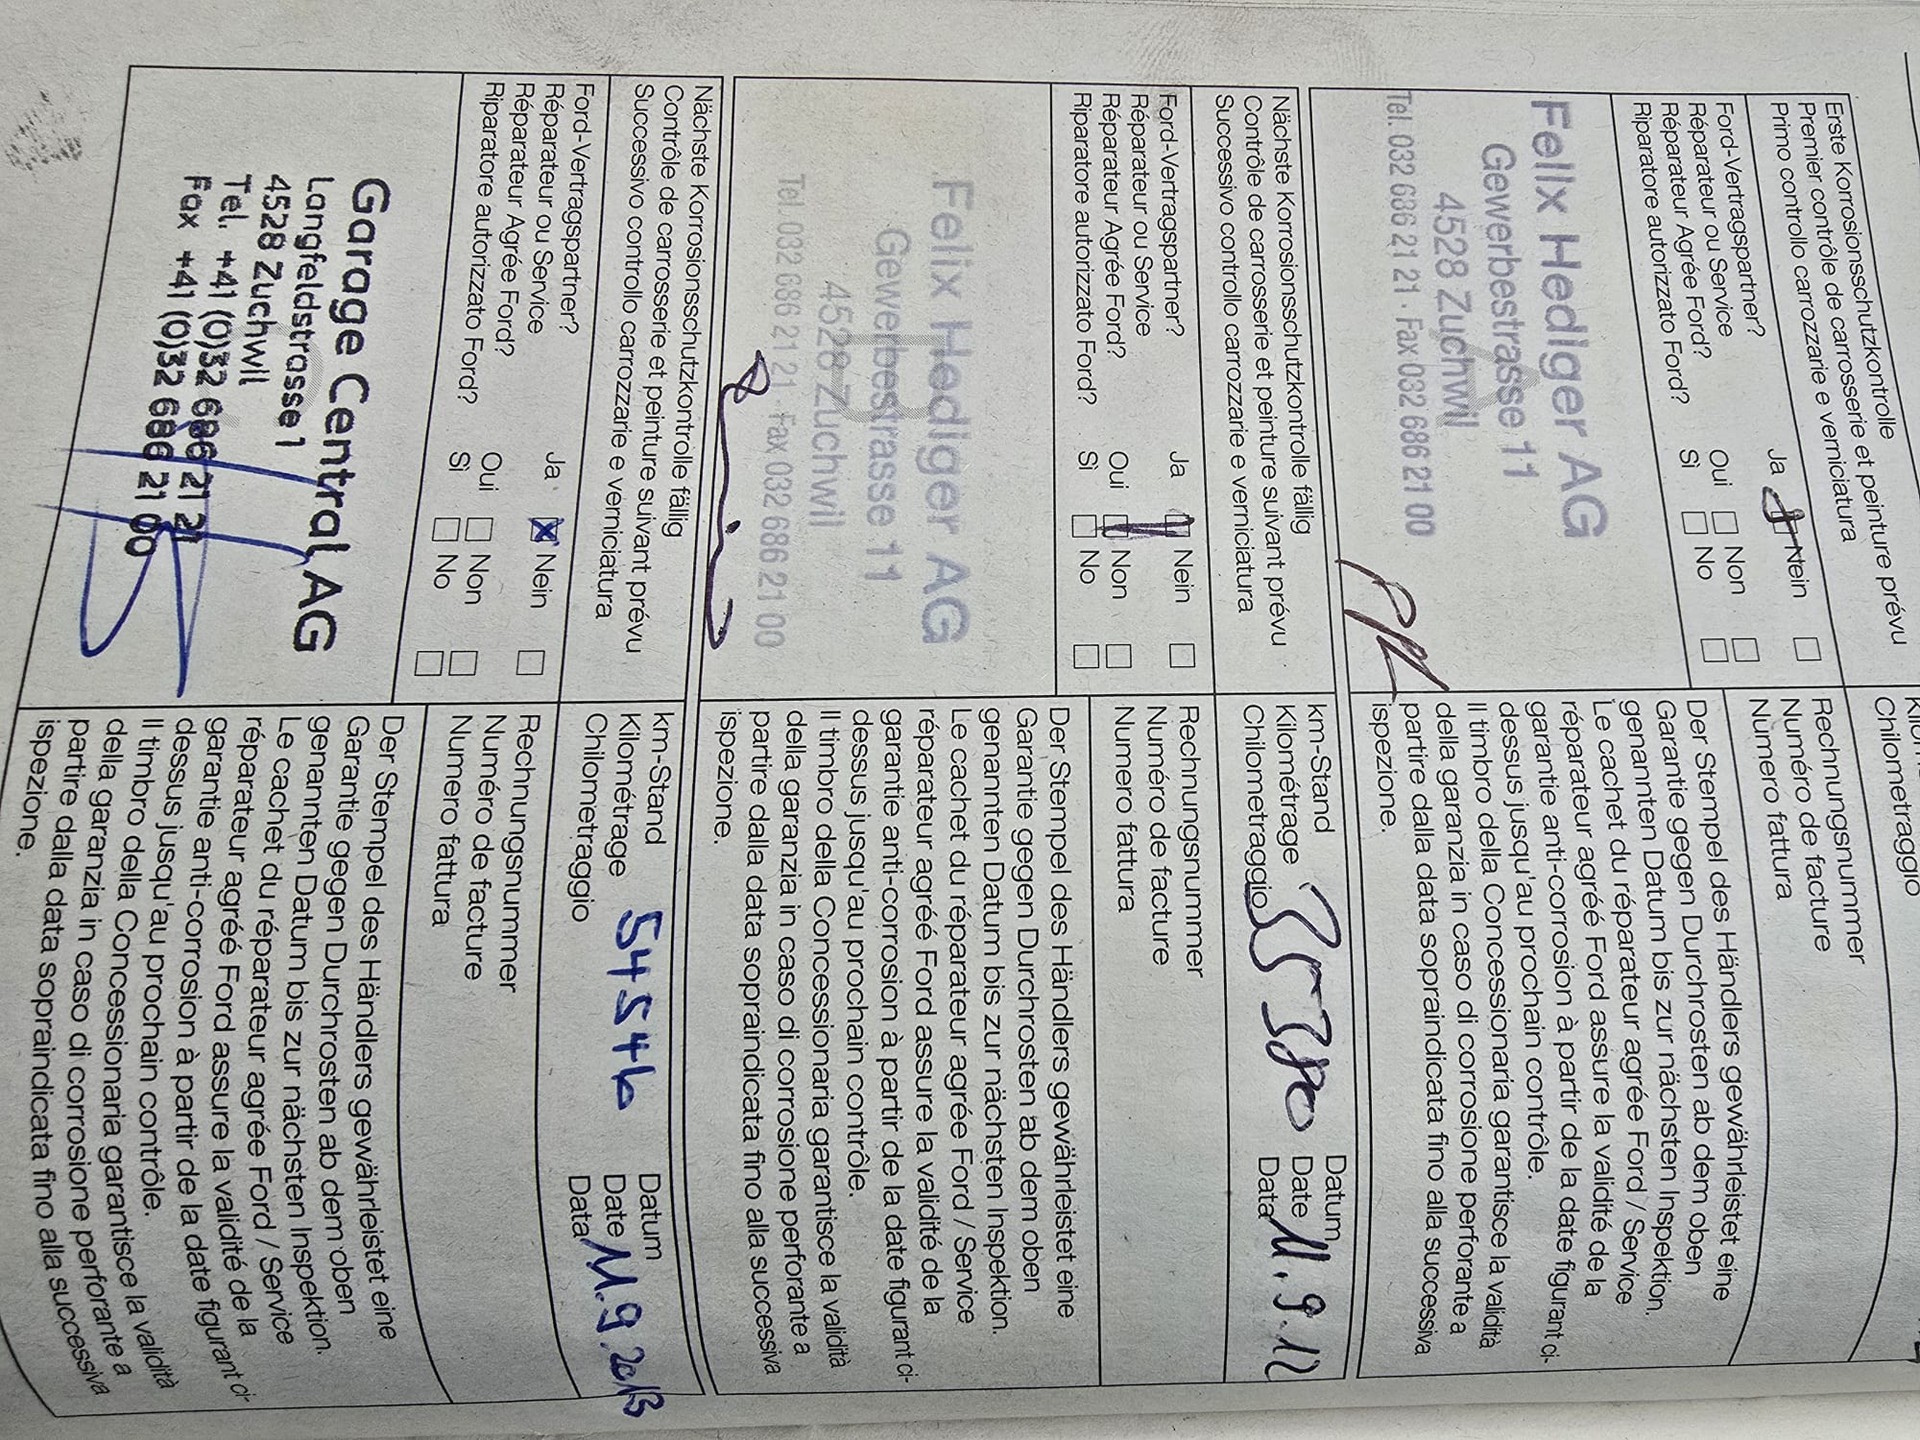 Chilometraggio
Erste Korrosionsschutzkontrolle
Premier contrôle de carrosserie et peinture prévu
Primo controllo carrozzarie e verniciatura
Ford-Vertragspartner? Ja Nein
Réparateur ou Service
Réparateur Agrée Ford? Oui Non
Riparatore autorizzato Ford? Sì No
Rechnungsnummer
Numéro de facture
Numero fattura
Felix Hediger AG
Gewerbestrasse 11
4528 Zuchwil
Tel. 032 686 21 21 · Fax 032 686 21 00
Der Stempel des Händlers gewährleistet eine
Garantie gegen Durchrosten ab dem oben
genannten Datum bis zur nächsten Inspektion.
Le cachet du réparateur agrée Ford / Service
réparateur agréé Ford assure la validité de la
garantie anti-corrosion à partir de la date figurant ci-
dessus jusqu'au prochain contrôle.
Il timbro della Concessionaria garantisce la validità
della garanzia in caso di corrosione perforante a
partire dalla data sopraindicata fino alla successiva
ispezione.
Nächste Korrosionsschutzkontrolle fällig
Contrôle de carrosserie et peinture suivant prévu
Successivo controllo carrozzarie e verniciatura
km-Stand
Kilométrage 35380
Chilometraggio
Datum
Date 11.9.12
Data
Ford-Vertragspartner? Ja Nein
Réparateur ou Service
Réparateur Agrée Ford? Oui Non
Riparatore autorizzato Ford? Sì No
Rechnungsnummer
Numéro de facture
Numero fattura
Felix Hediger AG
Gewerbestrasse 11
4528 Zuchwil
Tel. 032 686 21 21 · Fax 032 686 21 00
Der Stempel des Händlers gewährleistet eine
Garantie gegen Durchrosten ab dem oben
genannten Datum bis zur nächsten Inspektion.
Le cachet du réparateur agrée Ford / Service
réparateur agréé Ford assure la validité de la
garantie anti-corrosion à partir de la date figurant ci-
dessus jusqu'au prochain contrôle.
Il timbro della Concessionaria garantisce la validità
della garanzia in caso di corrosione perforante a
partire dalla data sopraindicata fino alla successiva
ispezione.
Nächste Korrosionsschutzkontrolle fällig
Contrôle de carrosserie et peinture suivant prévu
Successivo controllo carrozzarie e verniciatura
km-Stand
Kilométrage 54546
Chilometraggio
Datum
Date 11.9.2013
Data
Ford-Vertragspartner?
Réparateur ou Service Ja Nein
Réparateur Agrée Ford?
Riparatore autorizzato Ford? Oui Non
Sì No
Rechnungsnummer
Numéro de facture
Numero fattura
Garage Central AG
Langfeldstrasse 1
4528 Zuchwil
Tel. +41 (0)32 686 21 21
Fax +41 (0)32 686 21 00
Der Stempel des Händlers gewährleistet eine
Garantie gegen Durchrosten ab dem oben
genannten Datum bis zur nächsten Inspektion.
Le cachet du réparateur agrée Ford / Service
réparateur agréé Ford assure la validité de la
garantie anti-corrosion à partir de la date figurant ci-
dessus jusqu'au prochain contrôle.
Il timbro della Concessionaria garantisce la validità
della garanzia in caso di corrosione perforante a
partire dalla data sopraindicata fino alla successiva
ispezione.